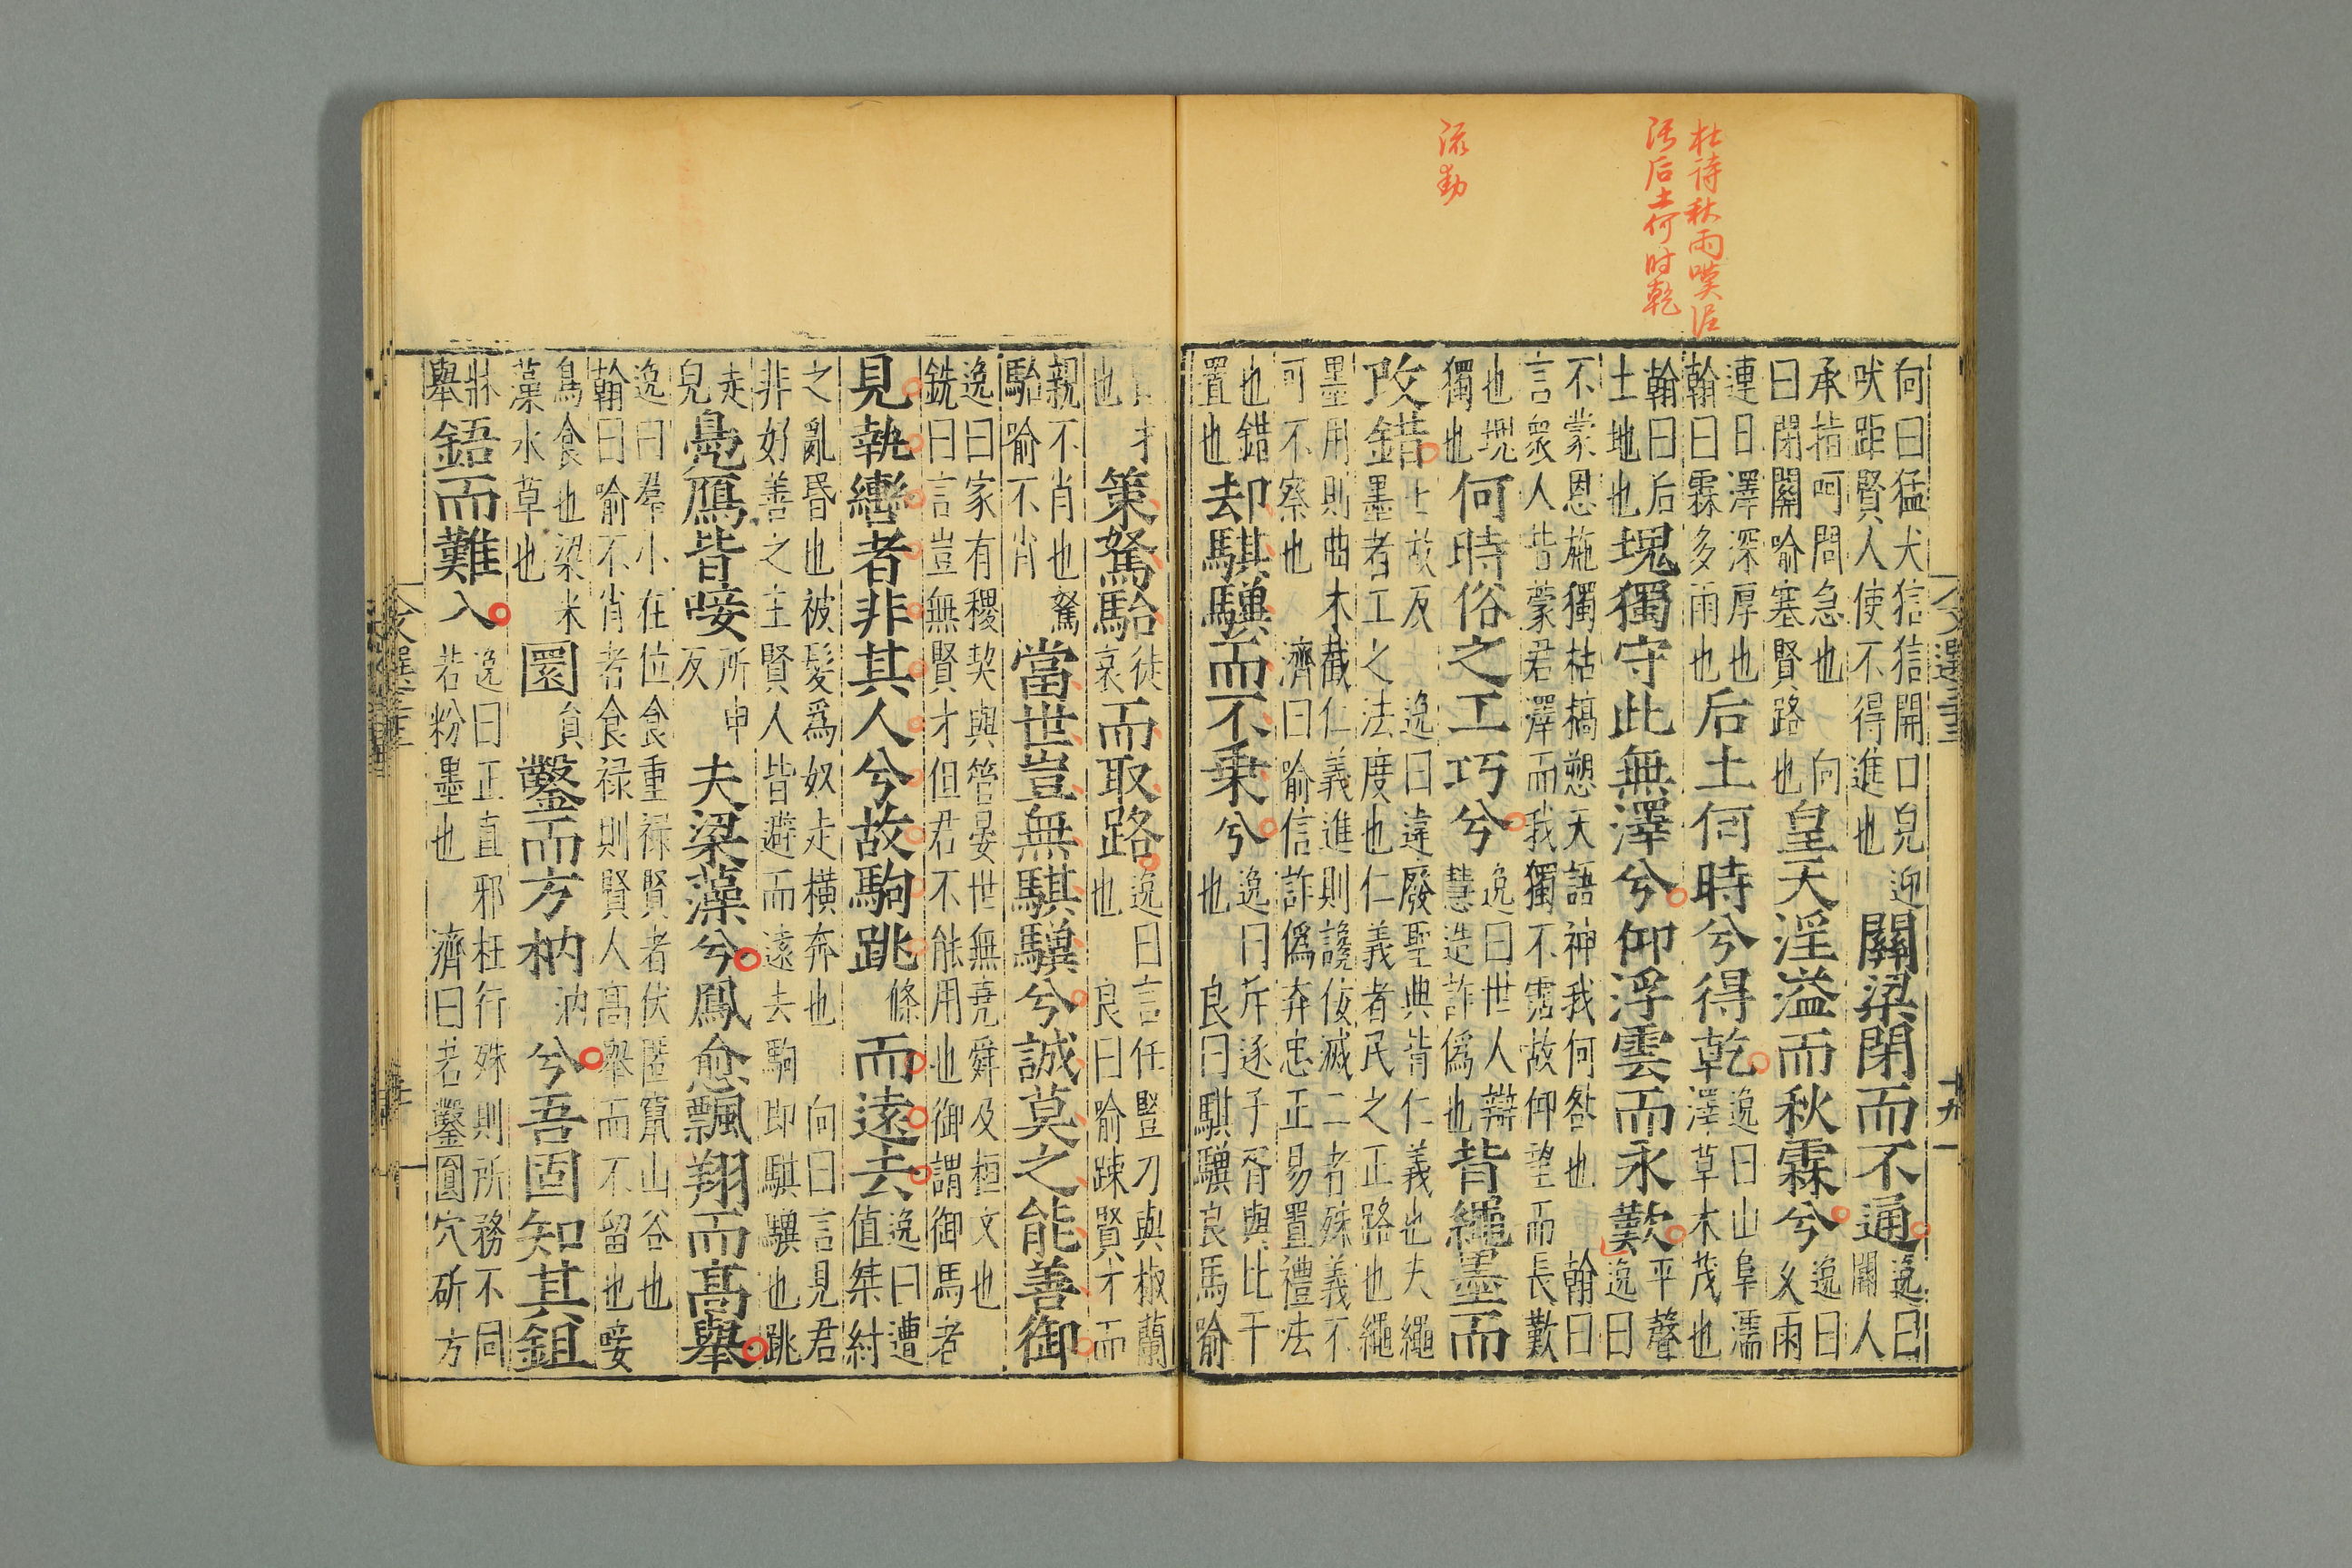 杜詩秋雨嘆泥
汚后土何时乾
流動
向曰猛犬狺狺開口皃迎吠距賢人使不得進也關梁閉而不通逸曰關人
承指呵問急也向曰閉關喻塞賢路也皇天淫溢而秋霖兮逸曰久雨
連日澤深厚也翰曰霖多雨也后土何時兮得乾逸曰山阜濡澤草木茂也
翰曰后土地也塊獨守此無澤兮仰浮雲而永歎平聲逸曰
不蒙恩施獨枯槁愬天語神我何咎也翰曰言衆人皆蒙君澤而我獨不霑故仰望而長歎
也塊獨也何時俗之工巧兮逸曰世人辯慧造詐僞也背繩墨而
改錯七故反逸曰違廢聖典背仁義也夫繩墨者工之法度也仁義者民之正路也繩
墨用則曲木截仁義進則讒佞滅二者殊義不可不察也濟曰喻信詐僞弃忠正易置禮法
也錯置也却騏驥而不乘兮逸曰斥逐子胥與比干也良曰騏驥良馬喻
才也策駑駘徒哀而取路逸曰言任豎刀與椒蘭也良曰喻踈賢才而
親不肖也駑駘喻不肖當世豈無騏驥兮誠莫之能善御
逸曰家有稷契與管晏世無堯舜及桓文也銑曰言豈無賢才但君不能用也御謂御馬者
見執轡者非其人兮故駒跳條而遠去逸曰遭值桀紂
之亂昏也被髮爲奴走橫奔也向曰言見君非好善之主賢人皆避而遠去駒即騏驥也跳
走皃鳧鴈皆唼所甲反夫梁藻兮鳳愈飄翔而高舉
逸曰羣小在位食重禄賢者伏匿竄山谷也翰曰喻不肖者食禄則賢人高舉而不留也唼
鳥食也梁米藻水草也圜員鑿而方枘汭兮吾固知其鉏
牀舉鋙而難入逸曰正直邪枉行殊則所務不同若粉墨也濟曰若鑿圓穴斫方